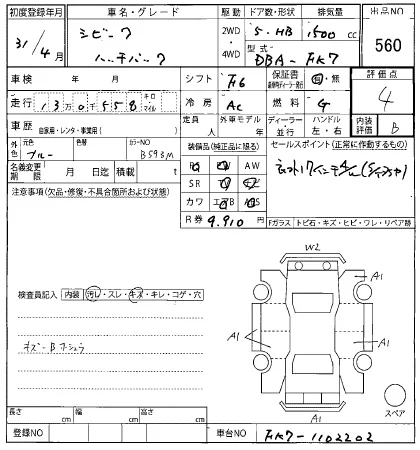 初度登録年月 車名・グレード 駆動 ドア数・形状 排気量 出品NO
31/4月 シビック 2WD 5・HB 1500 cc 560
ハッチバック 4WD 型式 DBA-FK7
車検 年 月 シフト F6 保証書 有・無 評価点
走行 13万0千558 キロ マイル 冷房 AC 燃料 G 4
車歴 自家用・レンタ・事業用( ) 定員 人 外車モデル 年 ディーラー 並行 ハンドル 左・右 内装評価 B
外色 元色 ブルー 色替 カラーNO B593M 装備品(純正品に限る) セールスポイント(正常に作動するもの)
名義変更期限 月 日迄 積載 t AW
注意事項(欠品・修復・不具合箇所および状態) SR
カワ
R券 9.910 円
Fガラス トビ石・キズ・ヒビ・ワレ・リペア跡
W2
A1
A1
検査員記入 内装 汚レ・スレ・キズ・キレ・コゲ・穴
A1
A1
A1
スペア
長さ cm 幅 cm 高さ cm
登録NO 車台NO FK7-1102202